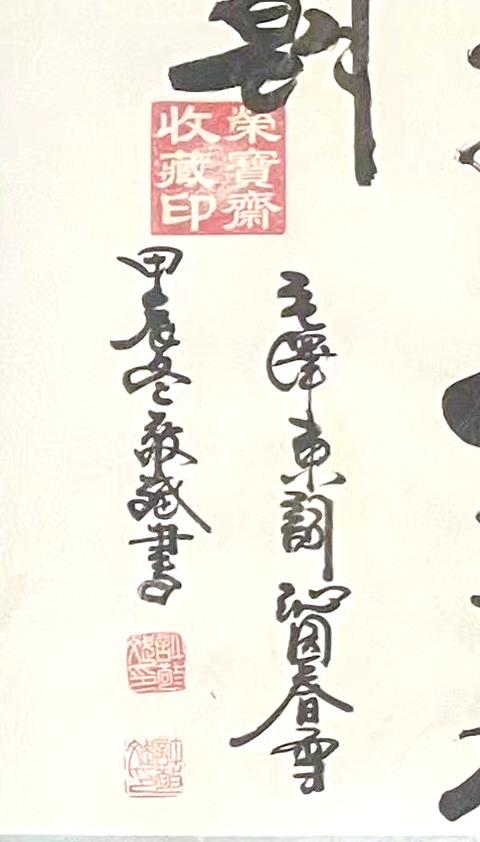 榮寶齋
收藏印
毛澤東詞沁園春雪
甲辰冬敬書